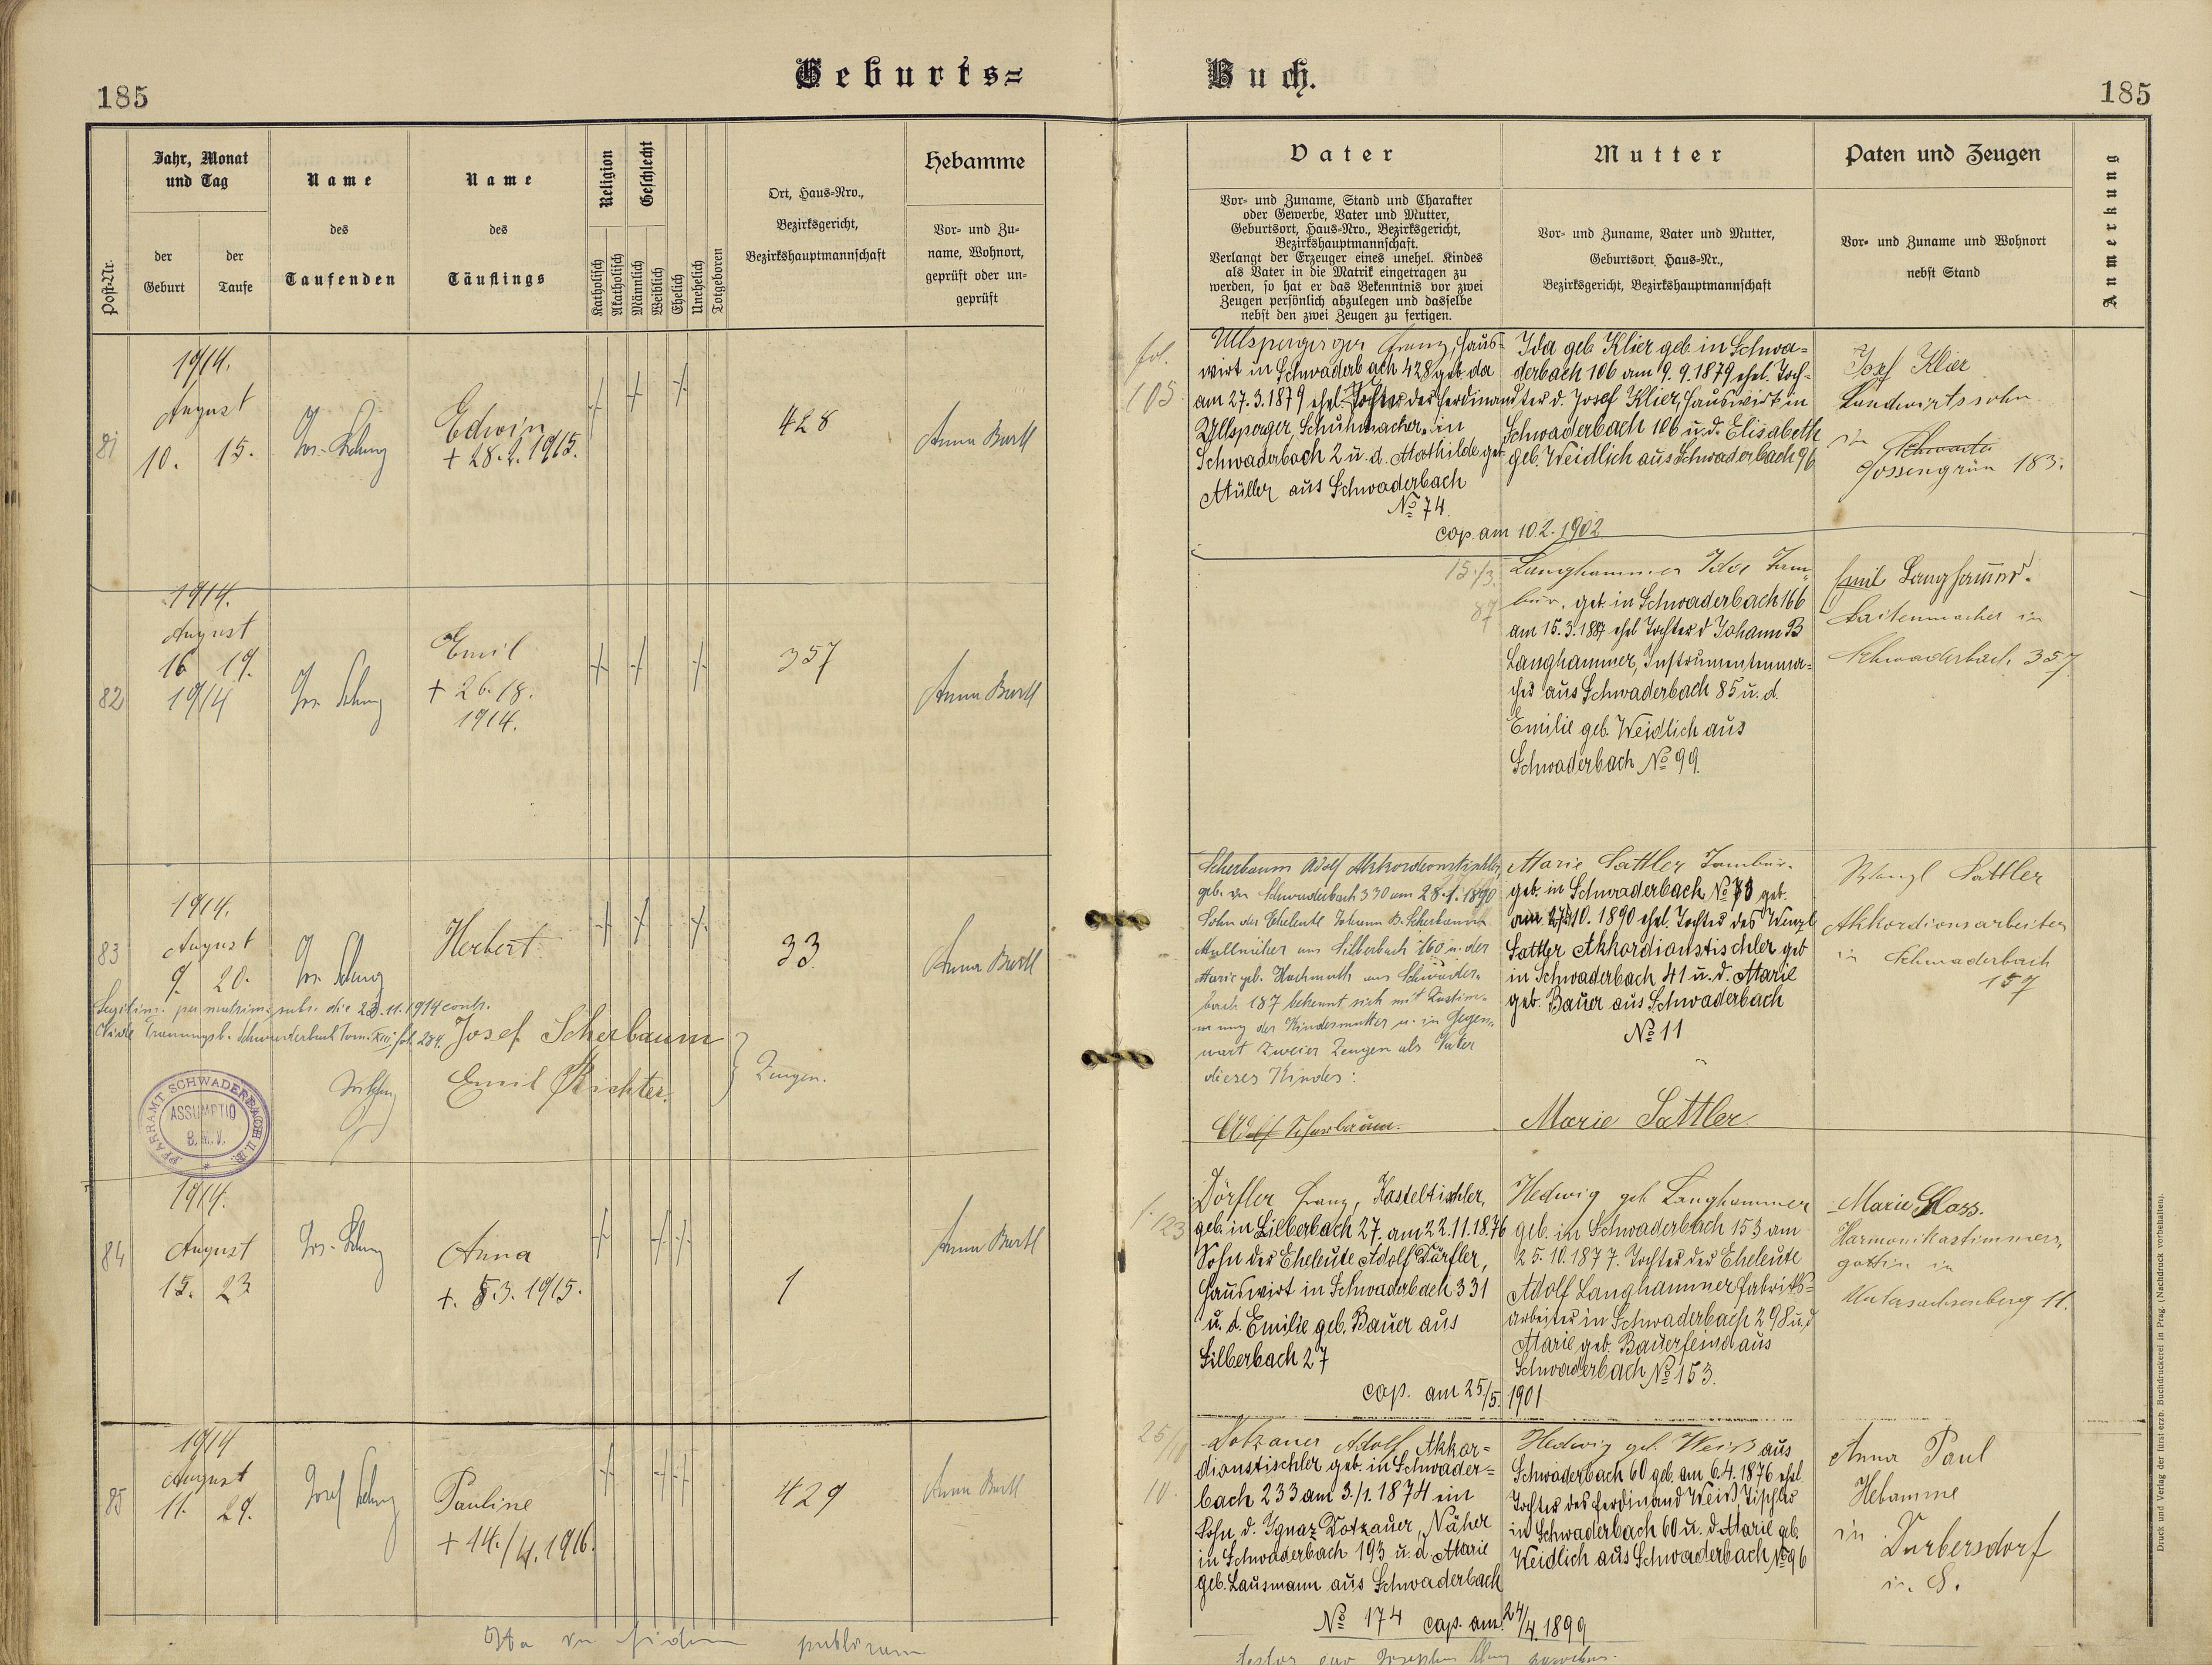 Geburts=
Buch.
185
185
Post-Nr.
Jahr, Monat
und Tag
der
Geburt
der
Taufe
Name
des
Taufenden
Name
des
Täuflings
Religion
Katholisch
Akatholisch
Geschlecht
Männlich
Weiblich
Ehelich
Unehelich
Totgeboren
Ort, Haus-Nro.,
Bezirksgericht,
Bezirkshauptmannschaft
Hebamme
Vor- und Zu-
name, Wohnort,
geprüft oder un-
geprüft
Vater
Vor- und Zuname, Stand und Charakter
oder Gewerbe, Vater und Mutter,
Geburtsort, Haus-Nro., Bezirksgericht,
Bezirkshauptmannschaft.
Verlangt der Erzeuger eines unehel. Kindes
als Vater in die Matrik eingetragen zu
werden, so hat er das Bekenntnis vor zwei
Zeugen persönlich abzulegen und dasselbe
nebst den zwei Zeugen zu fertigen.
Mutter
Vor- und Zuname, Vater und Mutter,
Geburtsort, Haus-Nr.,
Bezirksgericht, Bezirkshauptmannschaft
Paten und Zeugen
Vor- und Zuname und Wohnort
nebst Stand
Anmerkung
81
1914.
August
10. 15.
Edwin
+ 28.2.1915.
428
Anna Bartl
fol.
105
Ullsperger Franz, Haus-
wirt in Schwaderbach 428 geb. da
am 27.3.1879 ehel. des Ferdinand
Ullsperger, Schuhmacher in
Schwaderbach 2 u. d. Mathilde geb.
Müller aus Schwaderbach
No 74.
cop. am 10.2.1902
Ida geb. Klier geb. in Schwa=
derbach 106 am 9.9.1879 ehel. Toch=
ter d. Josef Klier, Hauswirt in
Schwaderbach 106 u. d. Elisabeth
geb. Weidlich aus Schwaderbach 96
Josef Klier
Landwirtssohn
in
Gossengrün 183.
82
1914.
August
16 19.
1914
Emil
+ 26./8.
1914.
357
Anna Bartl
15./3.
87
Langhammer Ida Tam-
bur. geb. in Schwaderbach 166
am 15.3.1887 ehel. Tochter d Johann B
Langhammer, Instrumentenma=
cher aus Schwaderbach 85 u. d.
Emilie geb. Weidlich aus
Schwaderbach No 99.
Emil Langhammer.
Saitenmacher in
Schwaderbach 357
83
1914.
August
9. 20.
Herbert
33
Anna Bartl
Legitim. per matrim. subs. die 23.11.1914 contr.
Trauungsb. Schwaderbach Tom. XIII fol. 284.
Josef Scherbaum
Emil Richter
Zeugen.
PFARRAMT SCHWADERBACH
ASSUMPTIO
B.M.V.
Scherbaum Adolf Akkordeontischler,
geb. in Schwaderbach 330 am 28.1.1890
Sohn der Eheleute Johann B. Scherbaum
aus Silberbach 160 u. der
Marie geb. Hochmuth aus Schwader-
bach 187 bekennt sich mit Zustim-
mung der Kindesmutter u. in Gegen-
wart zweier Zeugen als Vater
dieses Kindes:
Adolf Scherbaum.
Marie Sattler Tambur.
geb. in Schwaderbach No 73 geb.
am 27.10.1890 ehel. Tochter des Wenzl
Sattler Akkordionstischler geb
in Schwaderbach 41 u. d. Marie
geb. Bauer aus Schwaderbach
No 11
Marie Sattler
Wenzl Sattler
Akkordionsarbeiter
in Schwaderbach
157
84
1914.
August
15. 23
Anna
+. 5.3.1915.
1
Anna Bartl
f. 123
Dörfler Franz, Kasteltischler,
geb. in Silberbach 27. am 22.11.1876
Sohn der Eheleute Adolf Dörfler,
Hauswirt in Schwaderbach 331
u. d. Emilie geb. Bauer aus
Silberbach 27
cop. am 25/5. 1901
Hedwig geb Langhammer
geb. in Schwaderbach 153 am
25.10.1877. Tochter der Eheleute
Adolf Langhammer Fabriks=
arbeiter in Schwaderbach 298 u. d
Marie geb. Bauerfeind aus
Schwaderbach No 153.
Marie Glass.
Harmonikastimmers,
gattin in
Untersachsenberg 11.
85
1914
August
11. 29.
Pauline
+ 14./4.1916.
429
Anna Bartl
25/10
10.
Dotzauer Adolf Akkor=
dionstischler geb. in Schwader=
bach 233 am 3./1.1874 ein
Sohn d. Ignaz Dotzauer, Näher
in Schwaderbach 193 u. d. Marie
geb. Lausmann aus Schwaderbach
No 174 cap. am 24/4.1899
Hedwig geb. Weiß aus
Schwaderbach 60 geb. am 6.4.1876 ehel.
Tochter des Ferdinand Weiß, Tischler
in Schwaderbach 60 u. d Marie geb.
Weidlich aus Schwaderbach No 96
Anna Paul
Hebamme
in
in S.
Ita in fidem publicam
testor
Druck und Verlag der fürst-erzb. Buchdruckerei in Prag. (Nachdruck vorbehalten).